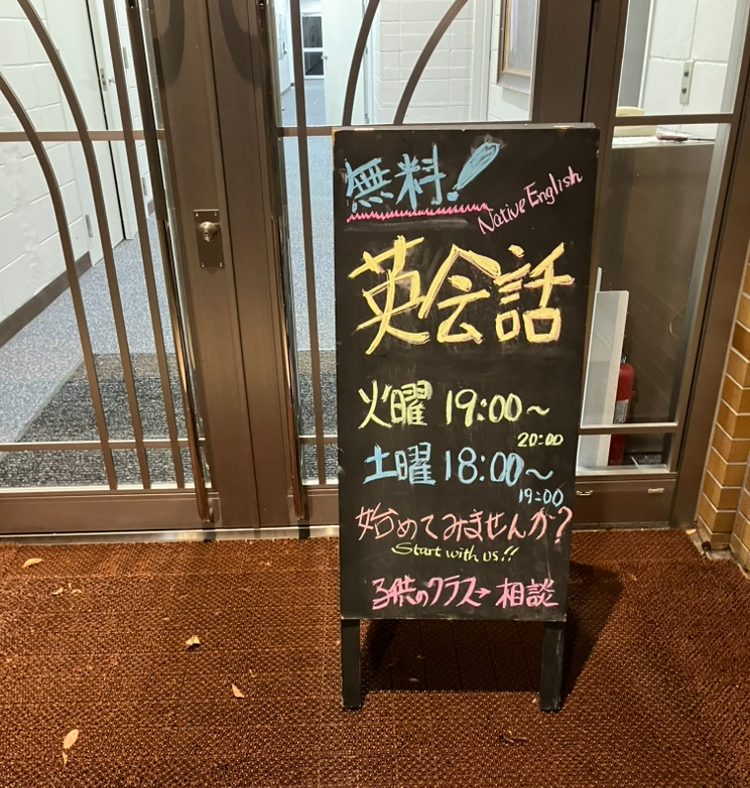 無料!
Native English
英会話
火曜 19:00~
20:00
土曜 18:00~
19:00
始めてみませんか?
Start with us!!
子供のクラス→相談